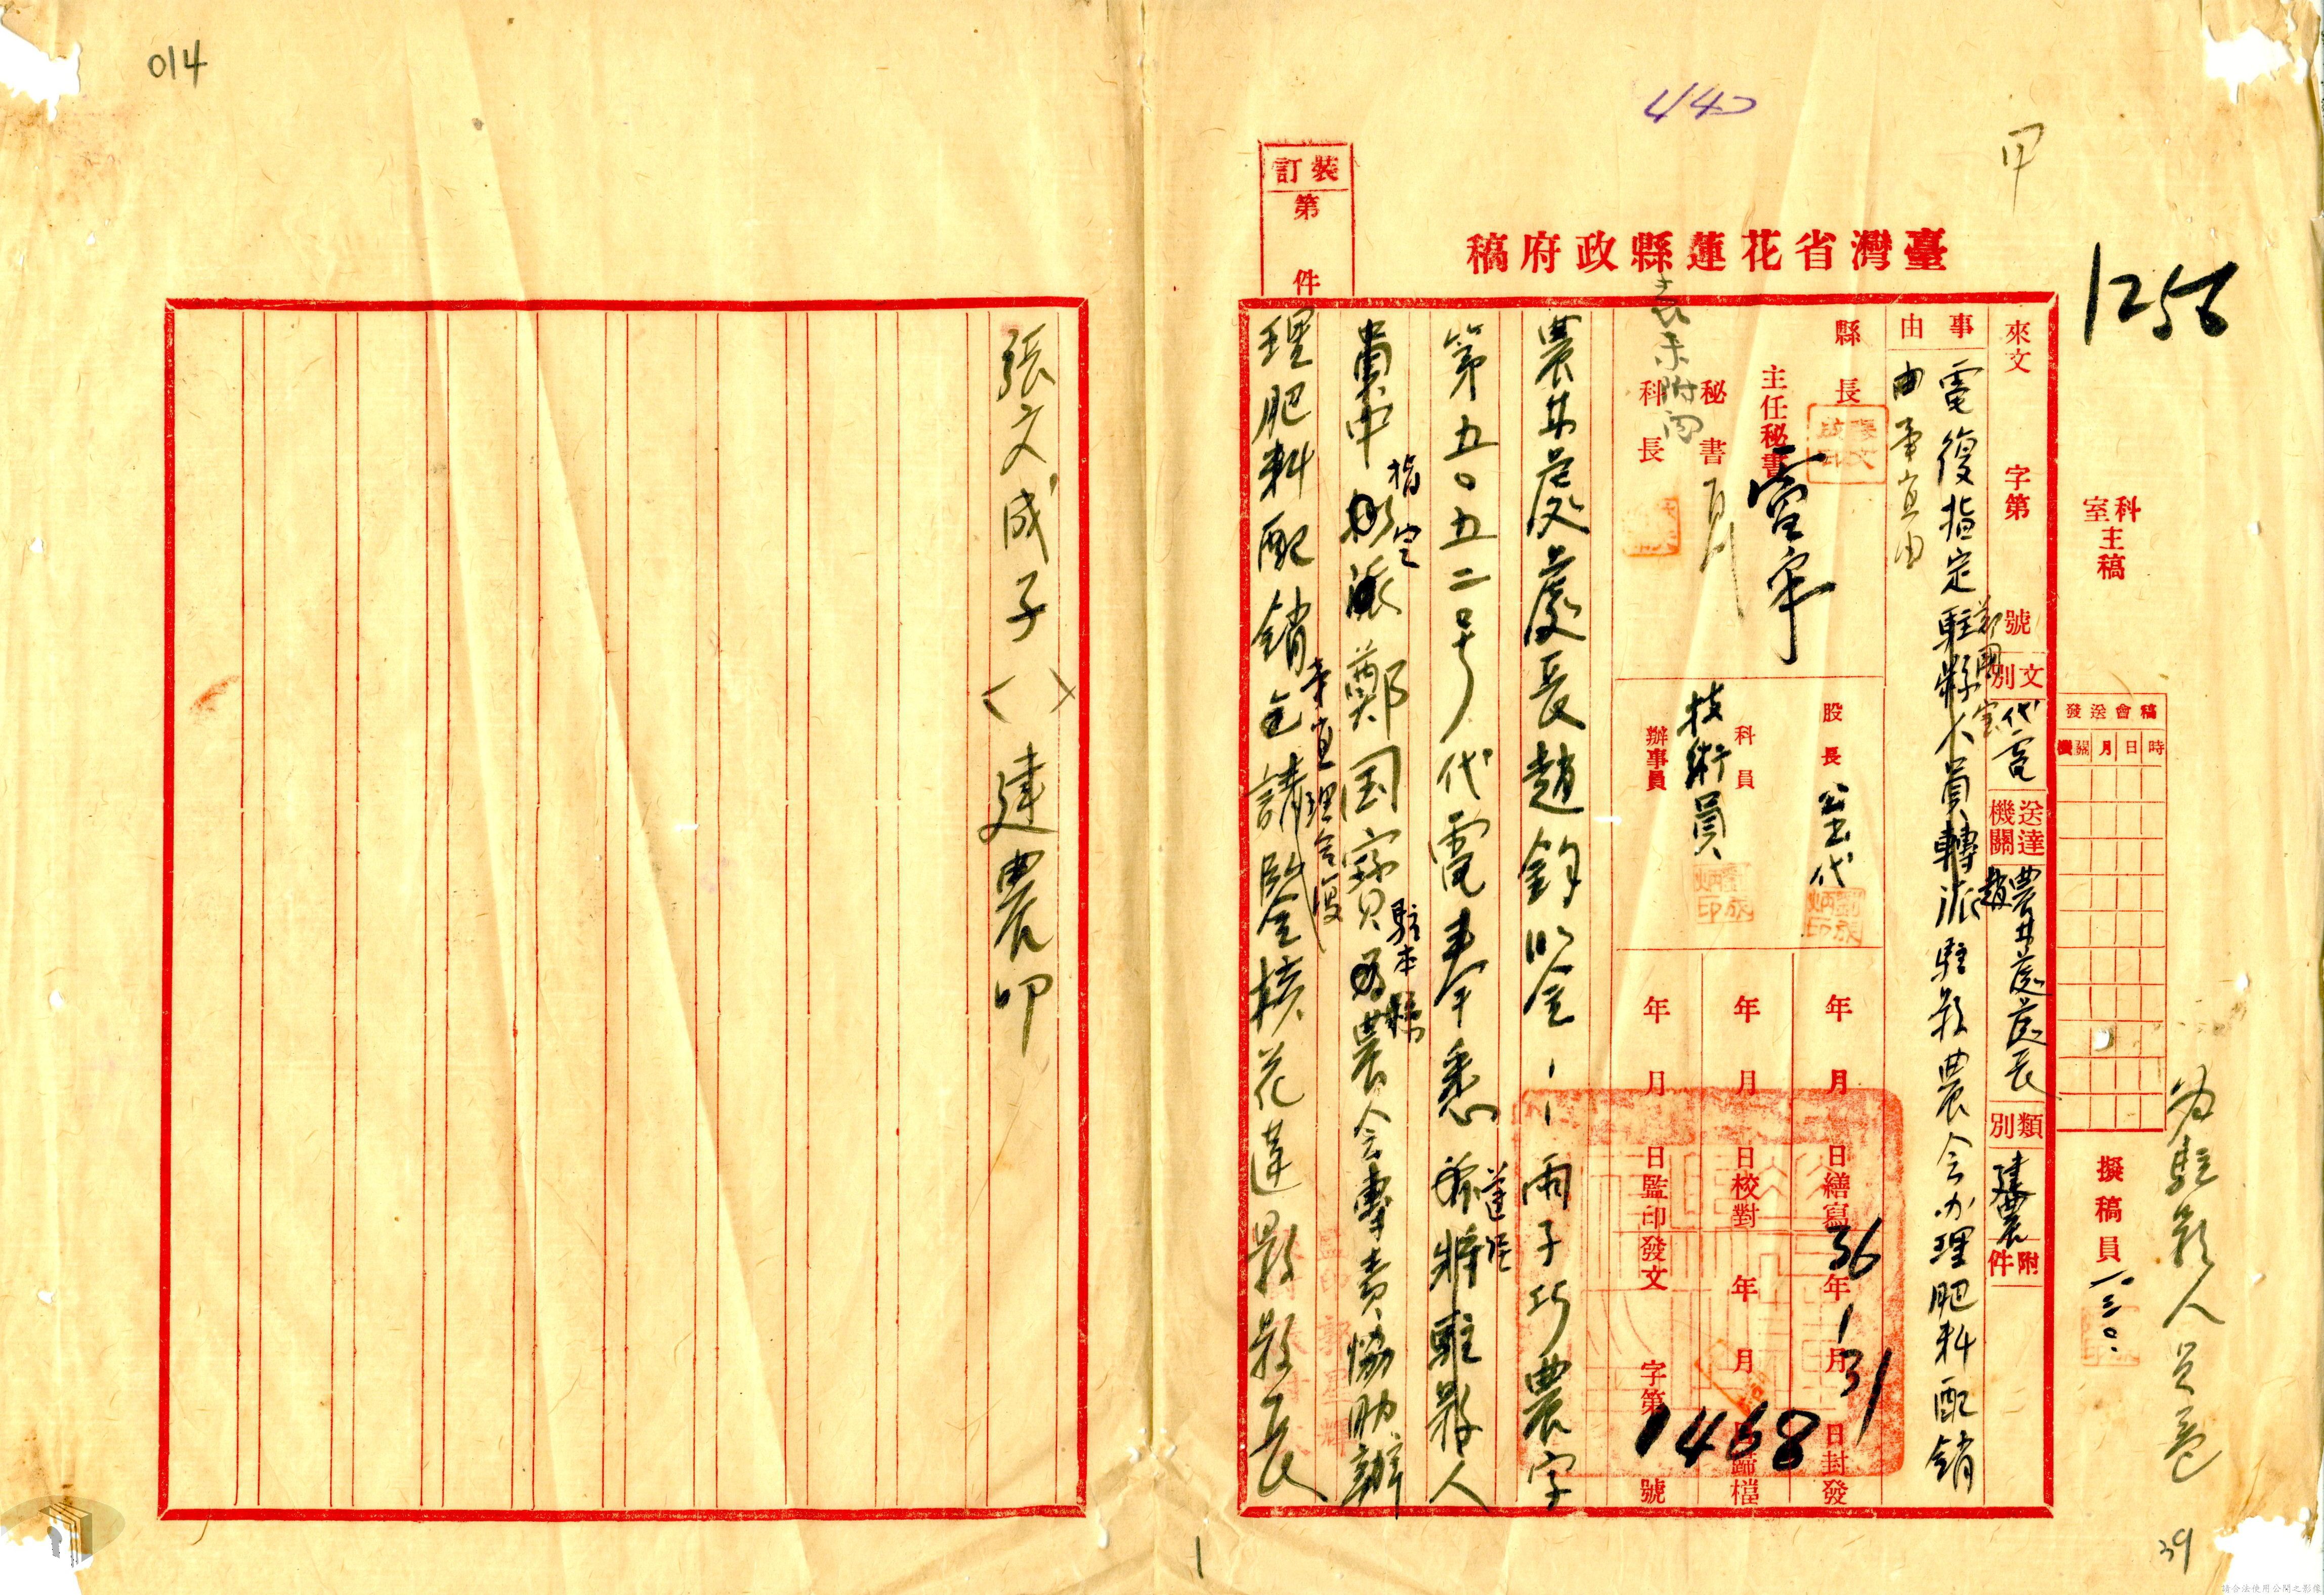 014
440
甲
1258
裝訂
第　件
臺灣省花蓮縣政府稿
科室主稿
擬稿員
一.三〇.
為駐縣人員卷
稿會送發
時日月關機
來文　字第　號
文別
代電
送達機關
農林處處長
趙
類別
建農
附件
事由
電復指定駐縣人員轉派駐縣農會办理肥料配銷
鄭國
由事宜由
縣長
主任秘書
秘書
科長
表未附內
股長
科員
技術員
辦事員
年月日繕寫
年月日校對
年月日監印
36年1月31日封發
年月日歸檔
發文　字第1468號
農林處處長趙鈞鑒子巧農字
第五〇五二号代電奉悉遵經將駐縣人
員中指定鄭国寶駐本縣農會專責協助辦
理肥料配銷事宜理合復請鑒核花蓮縣縣長
張文成子〈　〉建農叩
1
39
請合法使用公開之影像